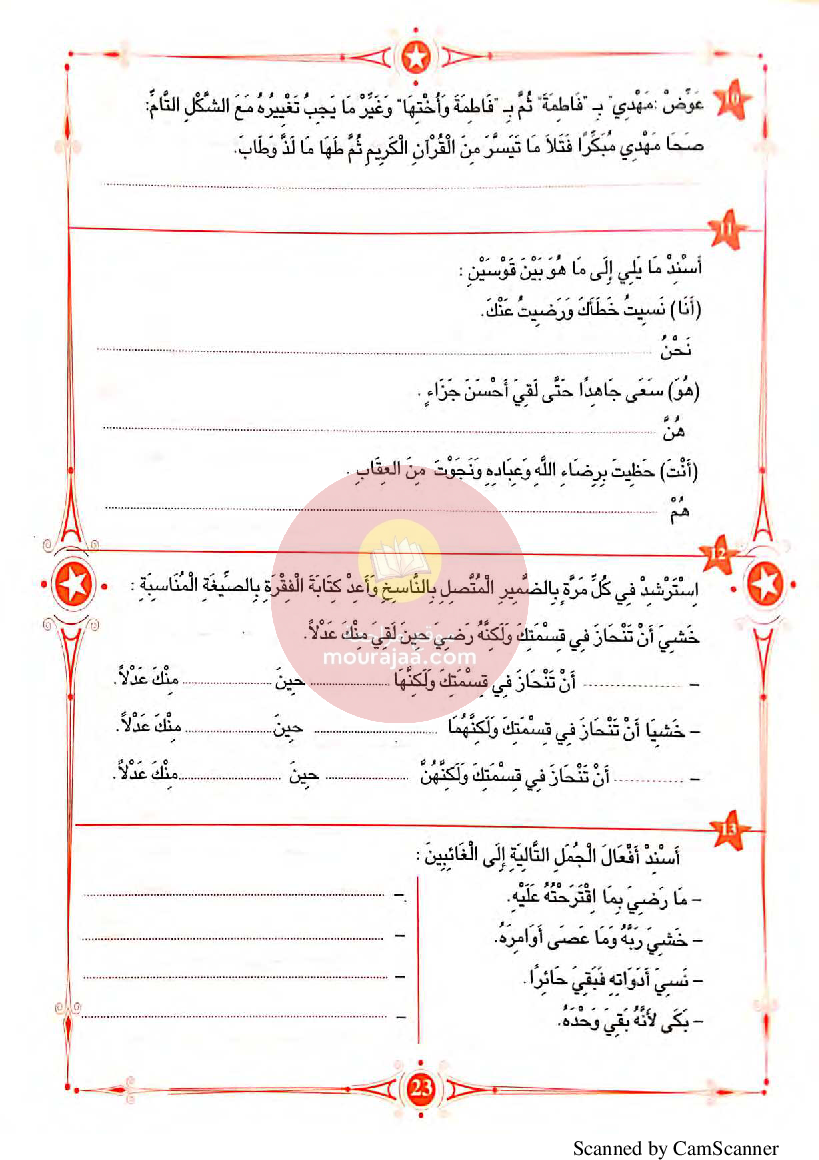 10
عَوِّضْ :مَهْدِي" بِـ "فَاطِمَةَ" ثُمَّ بِـ "فَاطِمَةَ وَأُخْتِهَا" وَغَيِّرْ مَا يَجِبُ تَغْيِيرُهُ مَعَ الشَّكْلِ التَّامِّ:
صَحَا مَهْدِي مُبَكِّرًا فَتَلاَ مَا تَيَسَّرَ مِنَ الْقُرْآنِ الْكَرِيمِ ثُمَّ طَهَا مَا لَذَّ وَطَابَ.
11
أَسْنِدْ مَا يَلِي إِلَى مَا هُوَ بَيْنَ قَوْسَيْنِ :
(أَنَا) نَسِيتُ خَطَأَكَ وَرَضِيتُ عَنْكَ.
نَحْنُ
(هُوَ) سَعَى جَاهِدًا حَتَّى لَقِيَ أَحْسَنَ جَزَاءٍ .
هُنَّ
(أَنْتَ) حَظِيتَ بِرِضَاءِ اللَّهِ وَعِبَادِهِ وَنَجَوْتَ مِنَ العِقَابِ .
هُمْ
12
اِسْتَرْشِدْ فِي كُلِّ مَرَّةٍ بِالضَّمِيرِ الْمُتَّصِلِ بِالنَّاسِخِ وَأَعِدْ كِتَابَةَ الْفِقْرَةِ بِالصِّيغَةِ الْمُنَاسِبَةِ :
خَشِيَ أَنْ تَنْحَازَ فِي قِسْمَتِكَ وَلَكِنَّهُ رَضِيَ حِينَ لَقِيَ مِنْكَ عَدْلاً.
موقع مراجعة
mourajaa.com
– .................... أَنْ تَنْحَازَ فِي قِسْمَتِكَ وَلَكِنَّهَا .................... حِينَ .................... مِنْكَ عَدْلاً.
– خَشِيَا أَنْ تَنْحَازَ فِي قِسْمَتِكَ وَلَكِنَّهُمَا .................... حِينَ .................... مِنْكَ عَدْلاً.
– .................... أَنْ تَنْحَازَ فِي قِسْمَتِكَ وَلَكِنَّهُنَّ .................... حِينَ .................... مِنْكَ عَدْلاً.
13
أَسْنِدْ أَفْعَالَ الْجُمَلِ التَّالِيَةِ إِلَى الْغَائِبِينَ :
– مَا رَضِيَ بِمَا اقْتَرَحْتُهُ عَلَيْهِ.
– خَشِيَ رَبَّهُ وَمَا عَصَى أَوَامِرَهُ.
– نَسِيَ أَدَوَاتِهِ فَبَقِيَ حَائِرًا.
– بَكَى لأَنَّهُ بَقِيَ وَحْدَهُ.
23
Scanned by CamScanner